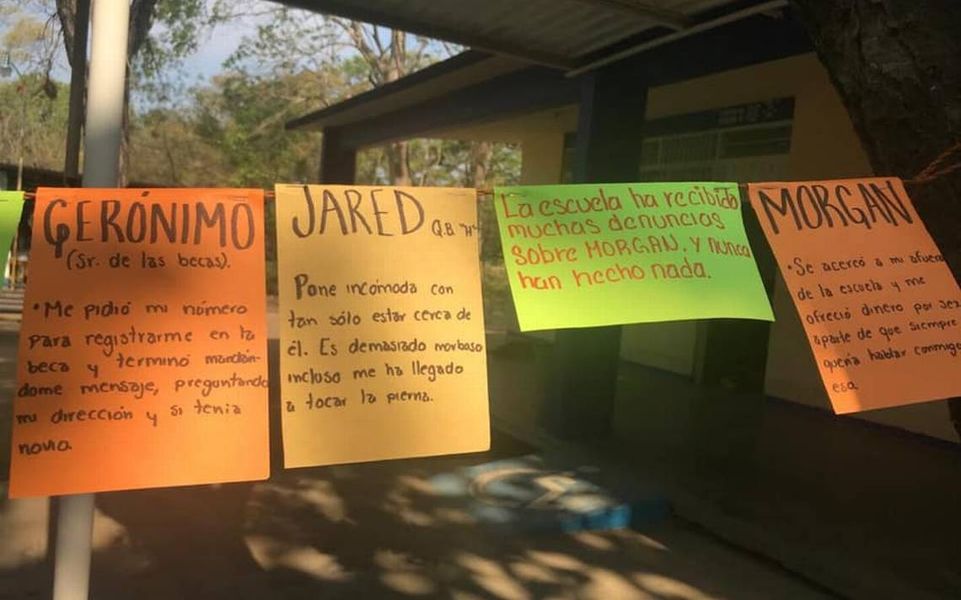 GERÓNIMO
(Sr. de las becas).
•Me pidió mi número
para registrarme en la
beca y terminó mandán-
dome mensaje, preguntando
mi dirección y si tenía
novio.
JARED Q.B "H"
Pone incómoda con
tan sólo estar cerca de
él. Es demasiado morboso
incluso me ha llegado
a tocar la pierna.
La escuela ha recibido
muchas denuncias
sobre MORGAN, y nunca
han hecho nada.
MORGAN
•Se acercó a mi afuera
de la escuela y me
ofreció dinero por sexo
aparte de que siempre
quería hablar conmigo
eso.